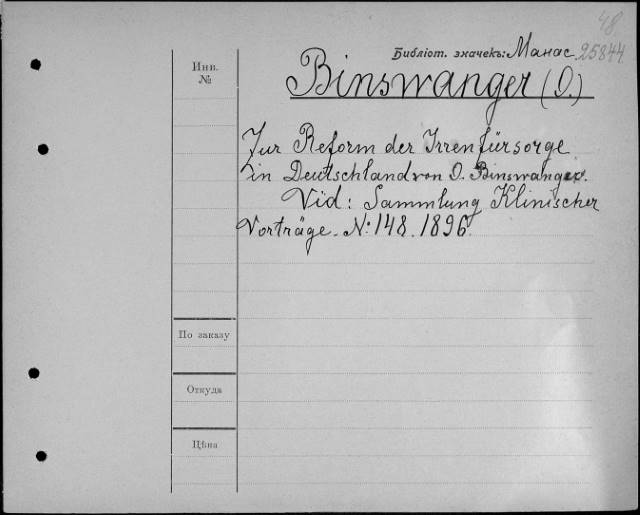 48
Библіот. значекъ: Манас 25844
Инв.
№
Binswanger (O.)
Zur Reform der Irrenfürsorge
in Deutschland von O. Binswanger.
Vid: Sammlung Klinischer
Vorträge. N: 148. 1896.
По заказу
Откуда
Цѣна